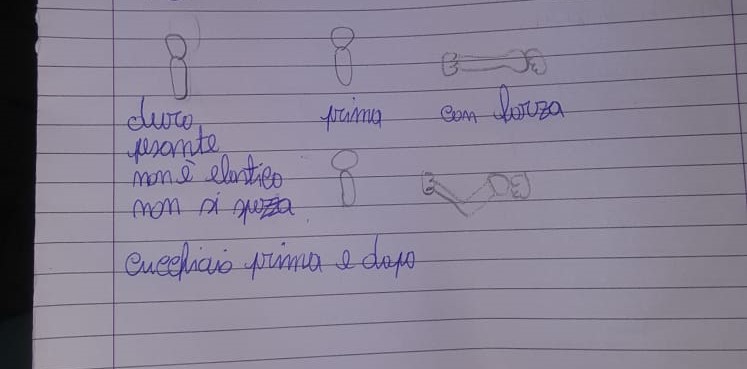 duro prima con forza
pesante
non è elastico
non si spezza
cucchiaio prima e dopo